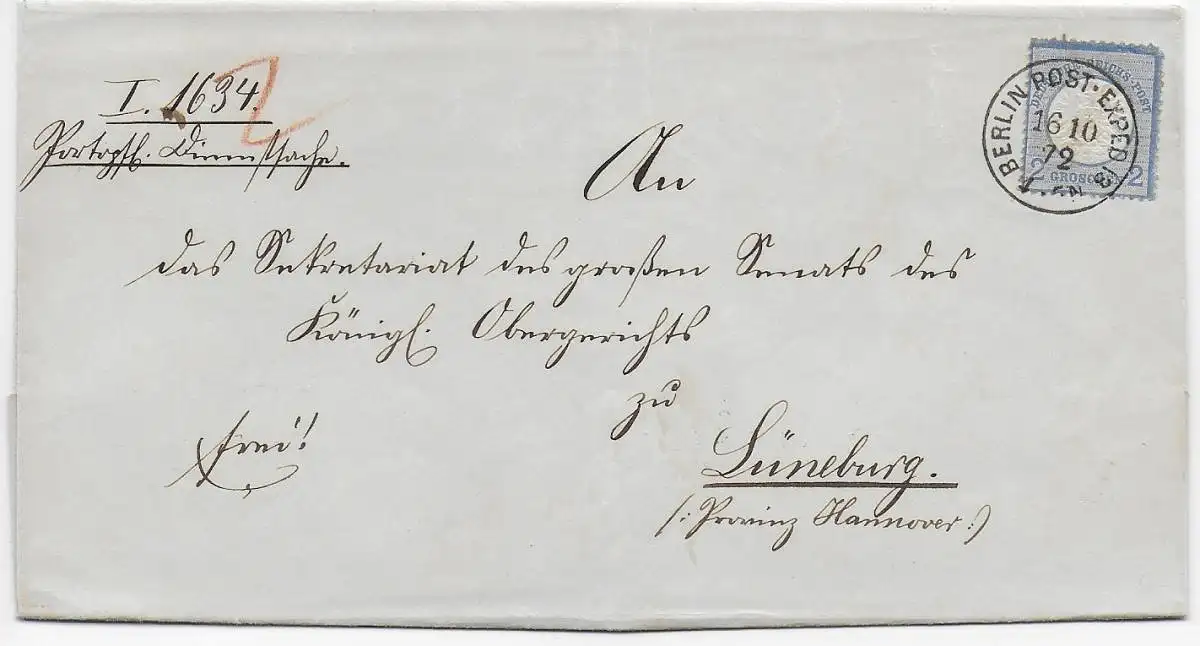 I. 1634.
2
Portopfl. Dienstsache.
BERLIN POST-EXPED
16 10
72
2 GROSCHEN 2
An
das Sekretariat des großen Senats des
Königl. Obergerichts
zu
frei!
Lüneburg.
(: Provinz Hannover :)